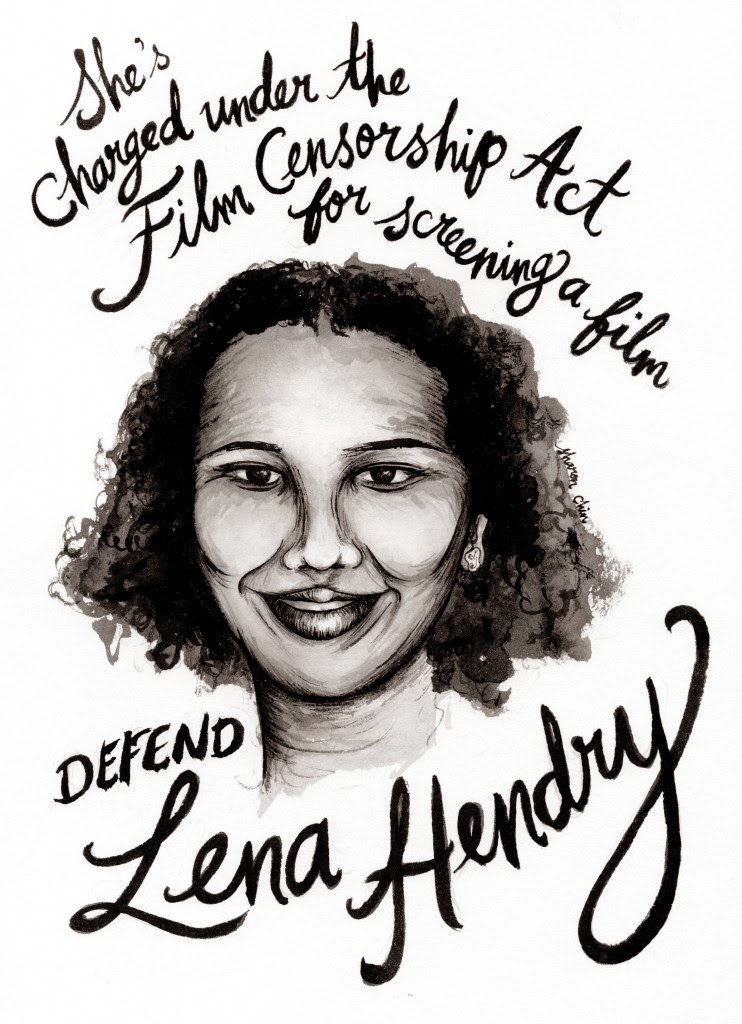 She's
charged under the
Film Censorship Act
for screening a film
sharon chin
DEFEND
Lena Hendry